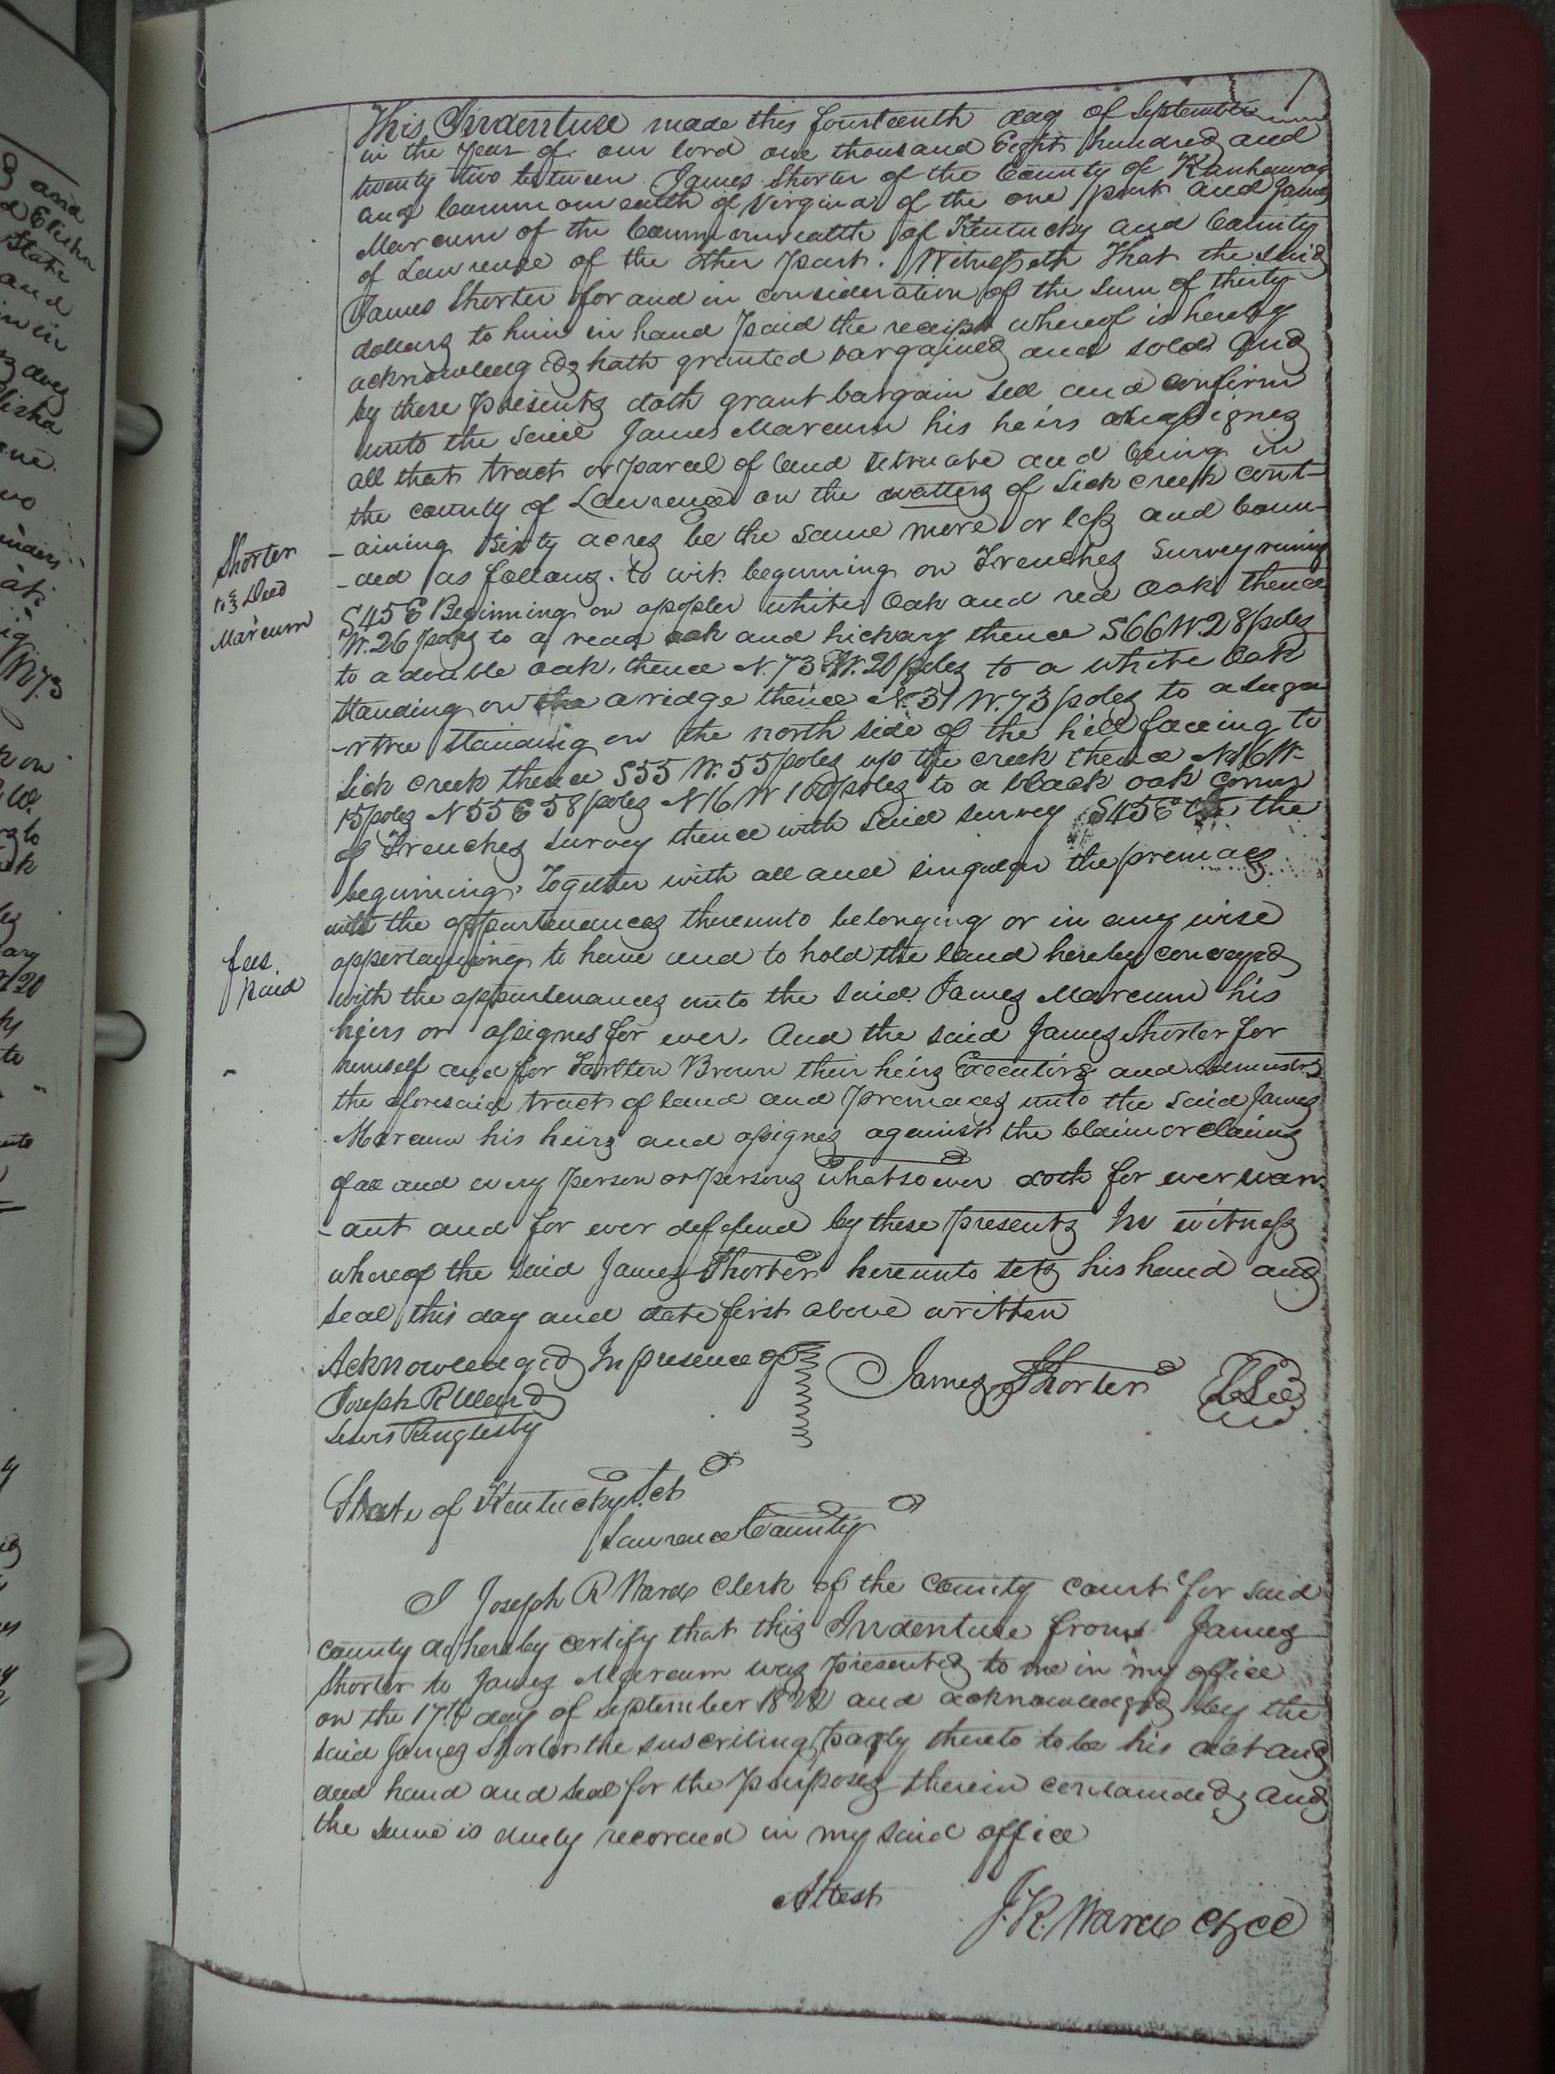 This Indenture made this fourteenth day of September
in the year of our lord one thousand Eight hundred and
twenty two between James Shorter of the County of Kanhaway
and Commonwealth of Virginia of the one part and James
Marcum of the Commonwealth of Kentucky and County
of Lawrence of the other part. Witnesseth That the said
James Shorter for and in consideration of the sum of thirty
dollars to him in hand paid the receipt whereof is hereby
acknowledged hath granted bargained and sold and
by these presents doth grant bargain sell and confirm
unto the said James Marcum his heirs or assignes
all that tract or parcel of land situate and being in
the county of Lawrence on the watters of Lick creek cont-
-aining sixty acres be the same more or less and boun-
-ded as follows. to wit. beginning on Frenches Survey runing
S45E Beginning on a popler white Oak and red Oak thence
W. 26 poles to a read oak and hickary thence S66W28 poles
to a double oak, thence N.73W.20 poles to a white Oak
standing on a ridge thence N.31W.73 poles to a suga-
-r tree standing on the north side of the hill faceing to
Lick creek thence S55W.55 poles up the creek thence N16W-
15 poles N55E58 poles N16W160 poles to a black oak corner
of Frenches survey thence with said survey S45E the
beginning. Together with all and singular the premaces
with the appurtenances thereunto belonging or in any wise
appertaining to have and to hold the land hereby conveyed
with the appurtenances unto the said James Marcum his
heirs or assignes for ever. And the said James Shorter for
himself and for Tarlton Brown their heirs Executors and Administrs
the aforesaid tract of land and premaces unto the said James
Marcum his heirs and assignes against the Claim or claims
of all and every person or persons whatsoever doth for ever warr
-ant and for ever deffend by these presents In witness
whereof the said James Shorter hereunto sets his hand and
seal this day and date first above written
Acknowledged In presence of
James Shorter
Joseph R Ward
Lewis
State of Kentucky Sct
Lawrence County
I Joseph R Ward Clerk of the County court for said
county do hereby certify that this Indenture from James
Shorter to James Marcum was presented to me in my office
on the 17th day of September 1822 and acknowledged by the
said James Shorter the suscribing party thereto to be his act and
deed hand and seal for the purposes therein contained and
the same is duely recorded in my said office
Attest J.R. Ward
Shorter
to Deed
Marcum
fees
paid